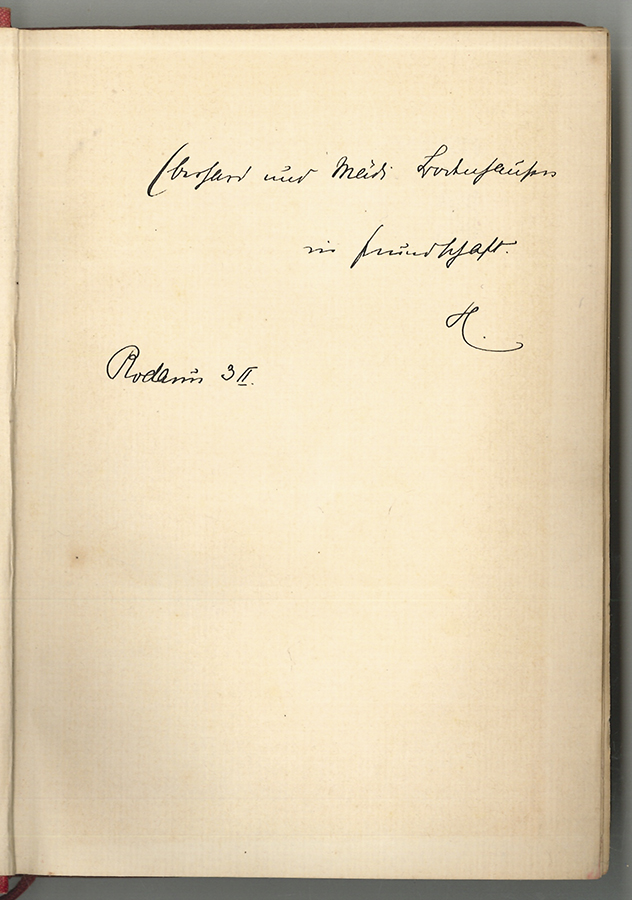 Eberhard und Mädi Bodenhausen
in Freundschaft.
H.
Rodaun 3 II.